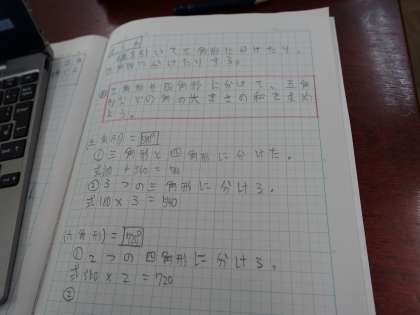 線を引いて三角形に分けたり、
四角形に分けたりする。
三角形や四角形に分けて、五角
形などの角の大きさの和を求め
よう。
五角形)=540°
①三角形と四角形に分けた。
式180+360=540
②3つの三角形に分ける。
式180×3=540
六角形)=720°
①2つの四角形に分ける。
式360×2=720
②